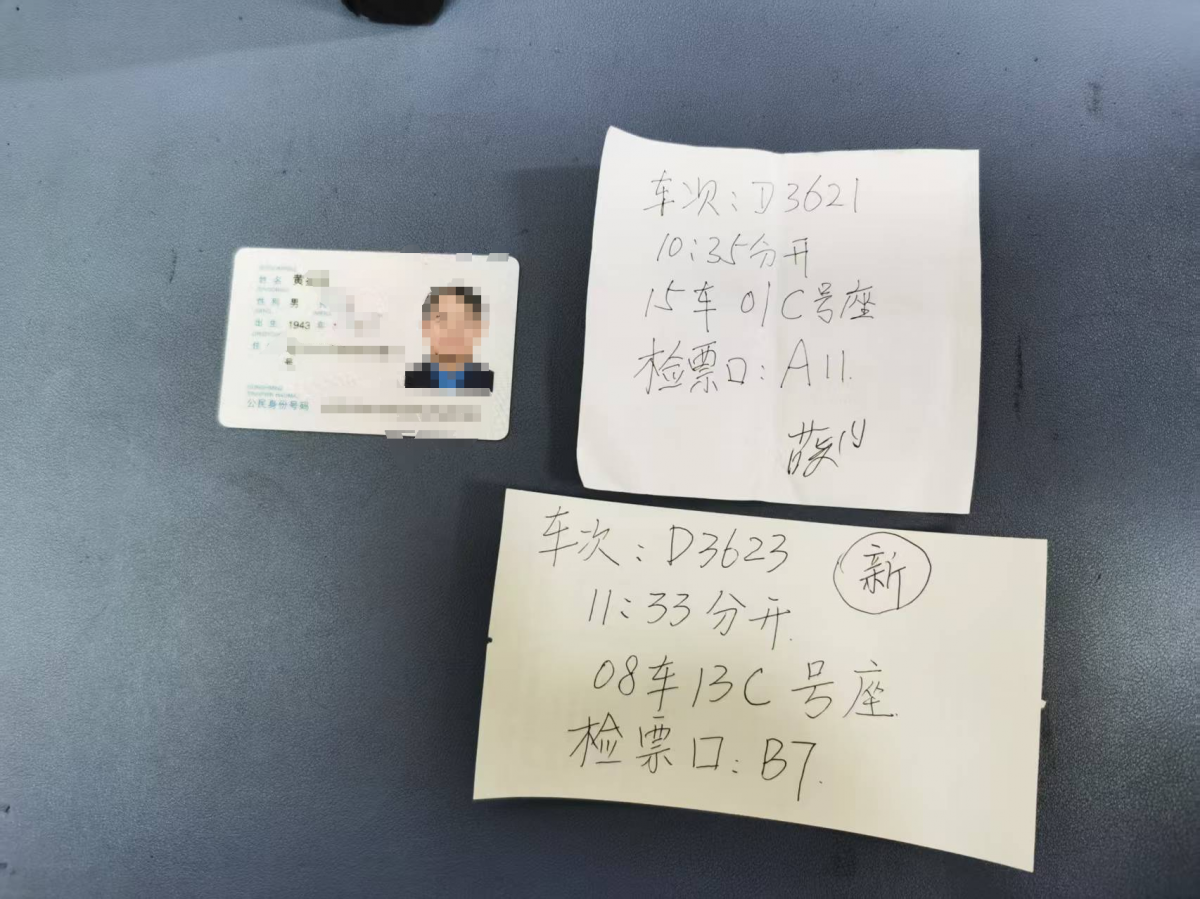 姓名 黄
性别 男
出生 1943 年
住
号
公民身份号码
车次:D3621
10:35分开
15车 01C号座
检票口:A11.
车次:D3623
新
11:33分开.
08车13C号座.
检票口:B7.